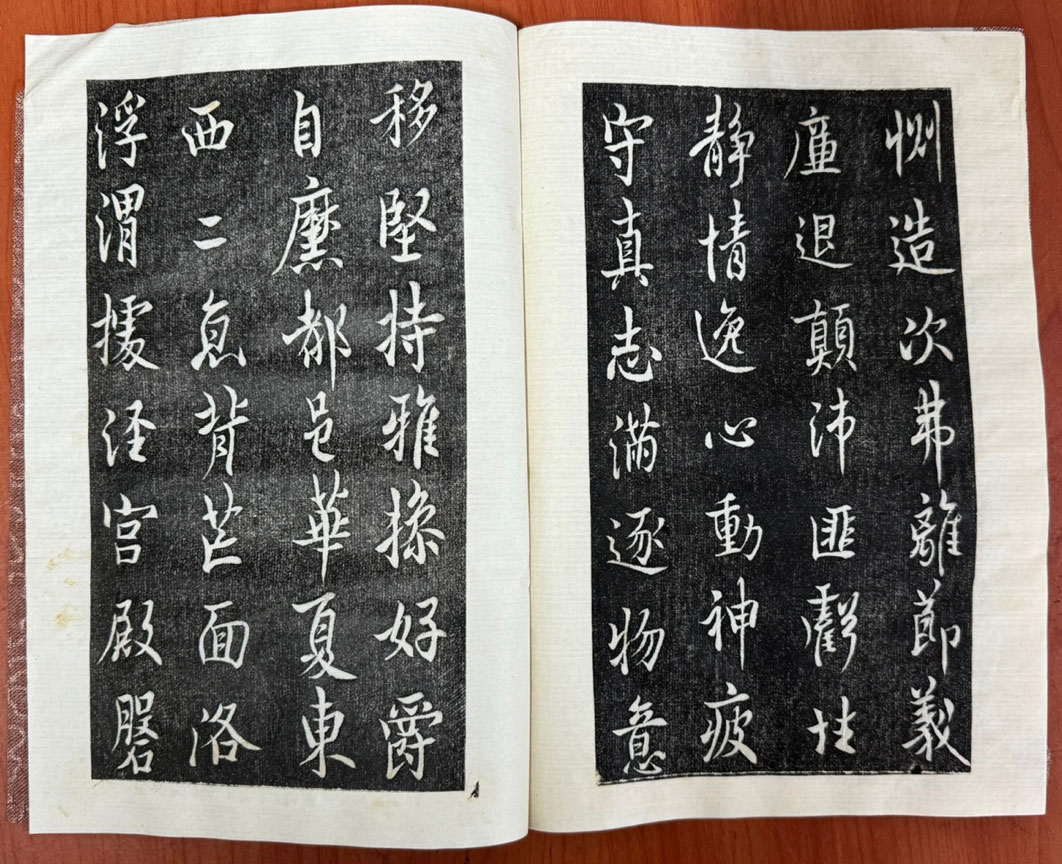 惻造次弗離節義
廉退顛沛匪虧性
靜情逸心動神疲
守真志滿逐物意
移堅持雅操好爵
自縻都邑華夏東
西二京背芒面洛
浮渭據涇宫殿磐